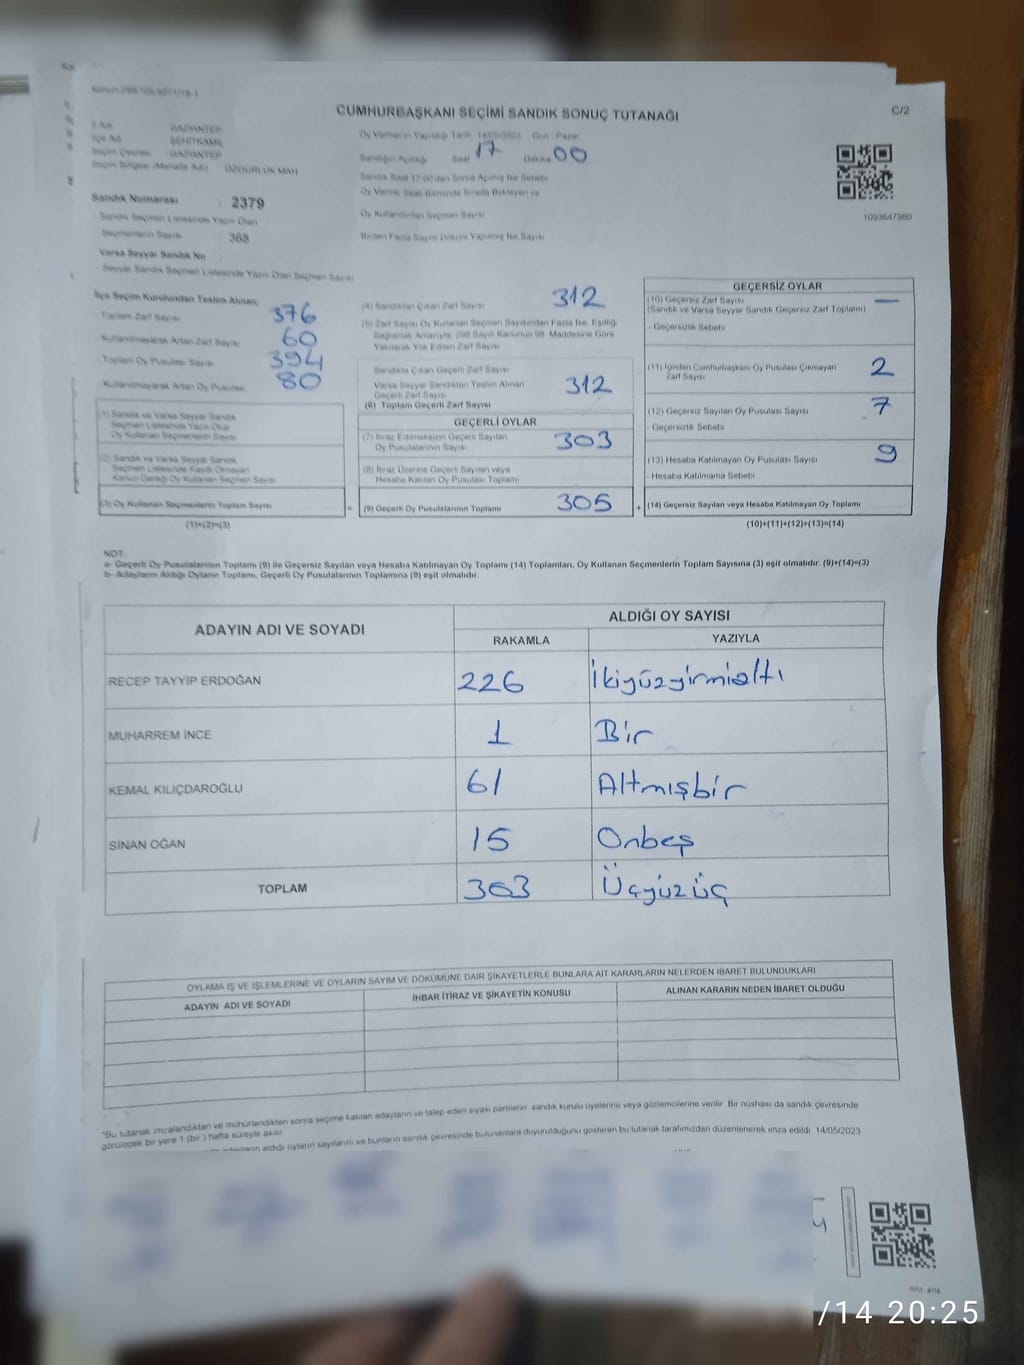 Kanun 298/105-6271/18-1
CUMHURBAŞKANI SEÇİMİ SANDIK SONUÇ TUTANAĞI
C/2
İl Adı : GAZİANTEP
İlçe Adı : ŞEHİTKAMİL
Seçim Çevresi : GAZİANTEP
Seçim Bölgesi (Mahalle Adı) : ÖZGÜRLÜK MAH
Sandık Numarası : 2379
Sandık Seçmen Listesinde Yazılı Olan
Seçmenlerin Sayısı : 368
Varsa Seyyar Sandık No
Seyyar Sandık Seçmen Listesinde Yazılı Olan Seçmen Sayısı
Oy Vermenin Yapıldığı Tarih 14/05/2023 Gün : Pazar
Sandığın Açıldığı Saat 17 Dakika 00
Sandık Saat 17:00'den Sonra Açılmış İse Sebebi
Oy Verme Saati Bitiminde Sırada Bekleyen ve
Oy Kullandırılan Seçmen Sayısı
Birden Fazla Sayım Döküm Yapılmış İse Sayısı
1093647960
İlçe Seçim Kurulundan Teslim Alınan;
Toplam Zarf Sayısı 376
Kullanılmayarak Artan Zarf Sayısı 60
Toplam Oy Pusulası Sayısı 394
Kullanılmayarak Artan Oy Pusulası 80
(1) Sandık ve Varsa Seyyar Sandık
Seçmen Listesinde Yazılı Olup
Oy Kullanan Seçmenlerin Sayısı
(2) Sandık ve Varsa Seyyar Sandık
Seçmen Listesinde Kayıtlı Olmayan
Kanun Gereği Oy Kullanan Seçmen Sayısı
(3) Oy Kullanan Seçmenlerin Toplam Sayısı
(1)+(2)=(3)
(4) Sandıktan Çıkan Zarf Sayısı 312
(5) Zarf Sayısı Oy Kullanan Seçmen Sayısından Fazla İse, Eşitliği
Sağlamak Amacıyla, 298 Sayılı Kanunun 98. Maddesine Göre
Yakılarak Yok Edilen Zarf Sayısı
Sandıkta Çıkan Geçerli Zarf Sayısı
Varsa Seyyar Sandıktan Teslim Alınan
Geçerli Zarf Sayısı 312
(6) Toplam Geçerli Zarf Sayısı
GEÇERLİ OYLAR
(7) İtiraz Edilmeksizin Geçerli Sayılan
Oy Pusulalarının Sayısı 303
(8) İtiraz Üzerine Geçerli Sayılan veya
Hesaba Katılan Oy Pusulası Toplamı
= (9) Geçerli Oy Pusulalarının Toplamı 305
GEÇERSİZ OYLAR
(10) Geçersiz Zarf Sayısı —
(Sandık ve Varsa Seyyar Sandık Geçersiz Zarf Toplamı)
- Geçersizlik Sebebi
(11) İçinden Cumhurbaşkanı Oy Pusulası Çıkmayan
Zarf Sayısı 2
(12) Geçersiz Sayılan Oy Pusulası Sayısı 7
Geçersizlik Sebebi
(13) Hesaba Katılmayan Oy Pusulası Sayısı 9
- Hesaba Katılmama Sebebi
+ (14) Geçersiz Sayılan veya Hesaba Katılmayan Oy Toplamı
(10)+(11)+(12)+(13)=(14)
NOT:
a- Geçerli Oy Pusulalarının Toplamı (9) ile Geçersiz Sayılan veya Hesaba Katılmayan Oy Toplamı (14) Toplamları, Oy Kullanan Seçmenlerin Toplam Sayısına (3) eşit olmalıdır. (9)+(14)=(3)
b- Adayların Aldığı Oyların Toplamı, Geçerli Oy Pusulalarının Toplamına (9) eşit olmalıdır.
ADAYIN ADI VE SOYADI
ALDIĞI OY SAYISI
RAKAMLA YAZIYLA
RECEP TAYYİP ERDOĞAN 226 İkiyüzyirmialtı
MUHARREM İNCE 1 Bir
KEMAL KILIÇDAROĞLU 61 Altmışbir
SİNAN OĞAN 15 Onbeş
TOPLAM 303 Üçyüzüç
OYLAMA İŞ VE İŞLEMLERİNE VE OYLARIN SAYIM VE DÖKÜMÜNE DAİR ŞİKAYETLERLE BUNLARA AİT KARARLARIN NELERDEN İBARET BULUNDUKLARI
ADAYIN ADI VE SOYADI
İHBAR İTİRAZ VE ŞİKAYETİN KONUSU
ALINAN KARARIN NEDEN İBARET OLDUĞU
"Bu tutanak imzalandıktan ve mühürlendikten sonra seçime katılan adayların ve talep eden siyasi partilerin sandık kurulu üyelerine veya gözlemcilerine verilir. Bir nüshası da sandık çevresinde
görülecek bir yere 1 (bir) hafta süreyle asılır.
adayların aldığı oyların sayılarını ve bunların sandık çevresinde bulunanlara duyurulduğunu gösteren bu tutanak tarafımızdan düzenlenerek imza edildi. 14/05/2023
/14 20:25